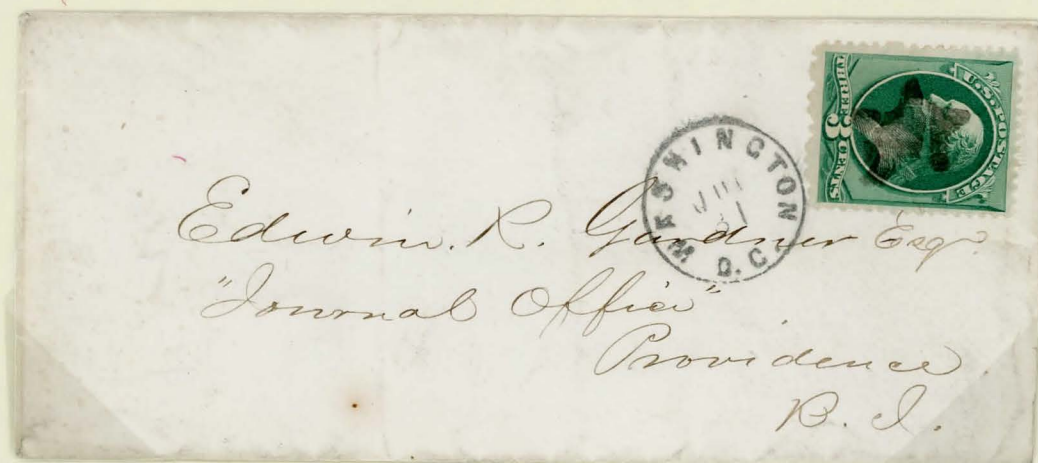 U.S. POSTAGE
THREE 3 CENTS
WASHINGTON
D.C.
Edwin. R. Gardner Esqr.
"Journal Office"
Providence
R. I.